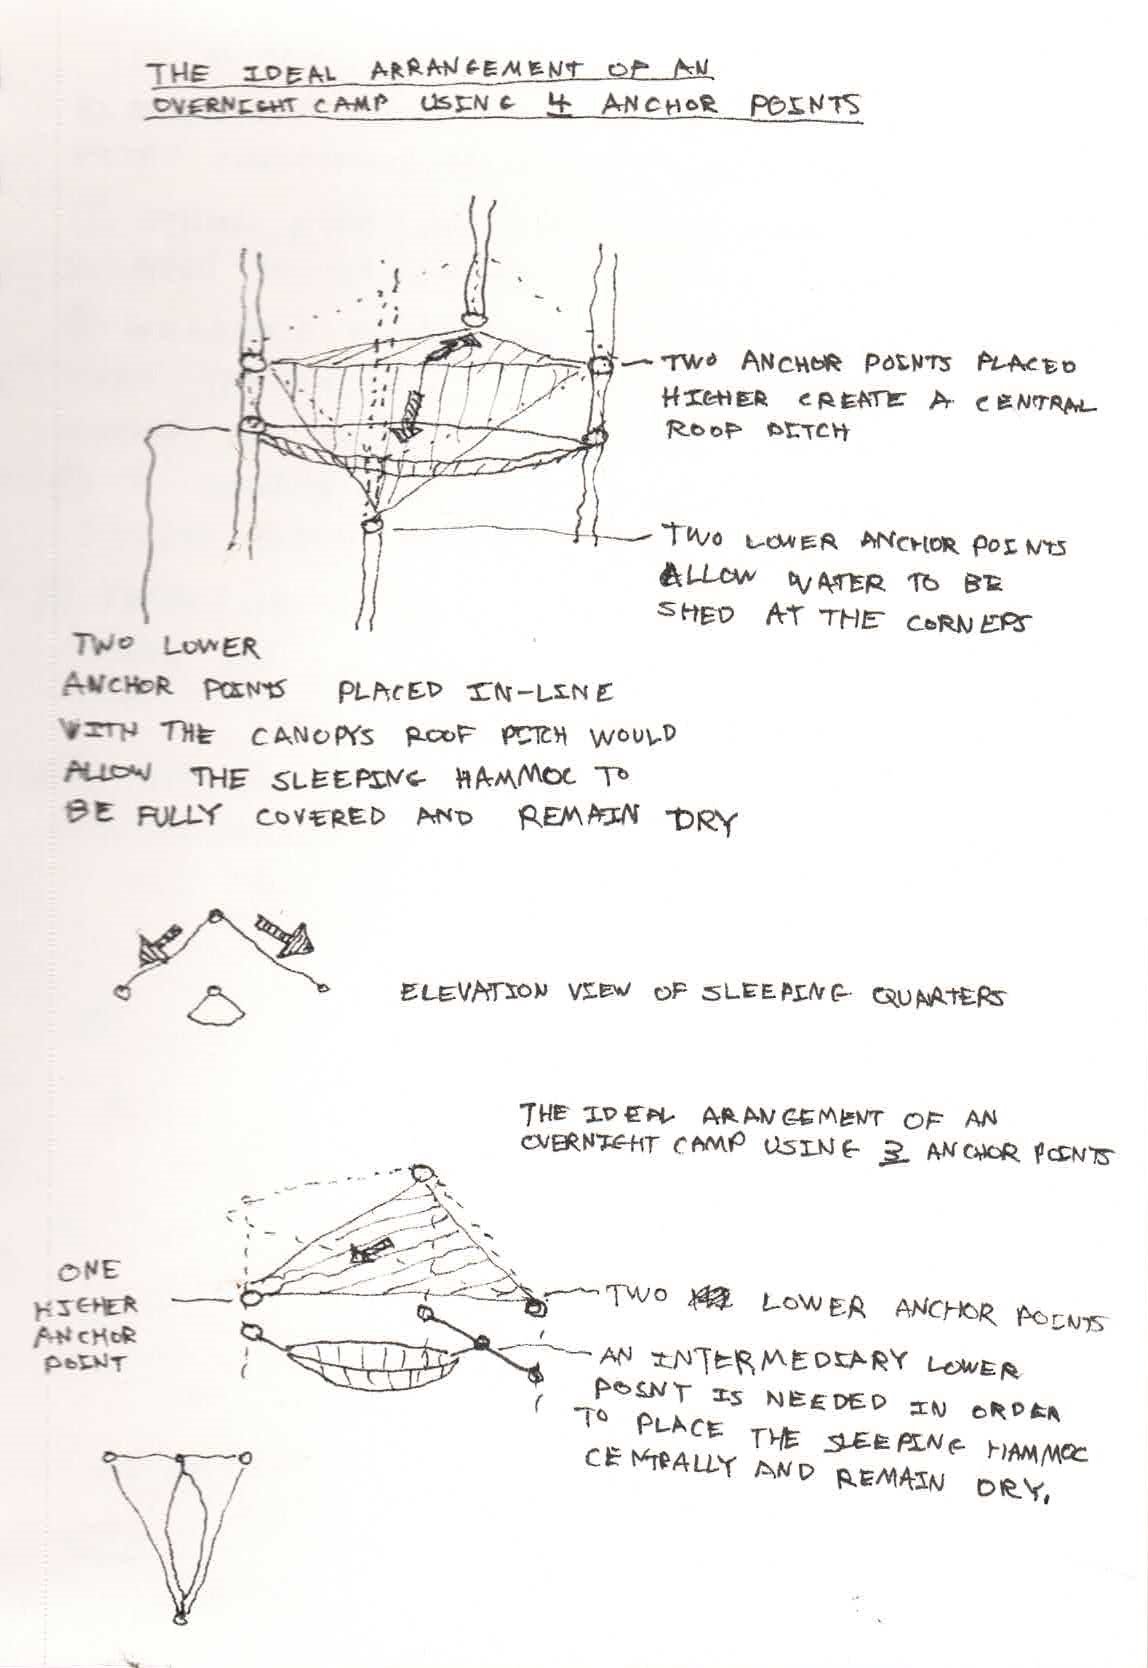 THE IDEAL ARRANGEMENT OF AN
OVERNIGHT CAMP USING 4 ANCHOR POINTS
TWO ANCHOR POINTS PLACED
HIGHER CREATE A CENTRAL
ROOF PITCH
TWO LOWER ANCHOR POINTS
ALLOW WATER TO BE
SHED AT THE CORNERS
TWO LOWER
ANCHOR POINTS PLACED IN-LINE
WITH THE CANOPYS ROOF PITCH WOULD
ALLOW THE SLEEPING HAMMOC TO
BE FULLY COVERED AND REMAIN DRY
ELEVATION VIEW OF SLEEPING QUARTERS
THE IDEAL ARANGEMENT OF AN
OVERNIGHT CAMP USING 3 ANCHOR POINTS
ONE
HIGHER
ANCHOR
POINT
TWO LOWER ANCHOR POINTS
AN INTERMEDIARY LOWER
POINT IS NEEDED IN ORDER
TO PLACE THE SLEEPING HAMMOC
CENTRALLY AND REMAIN DRY.